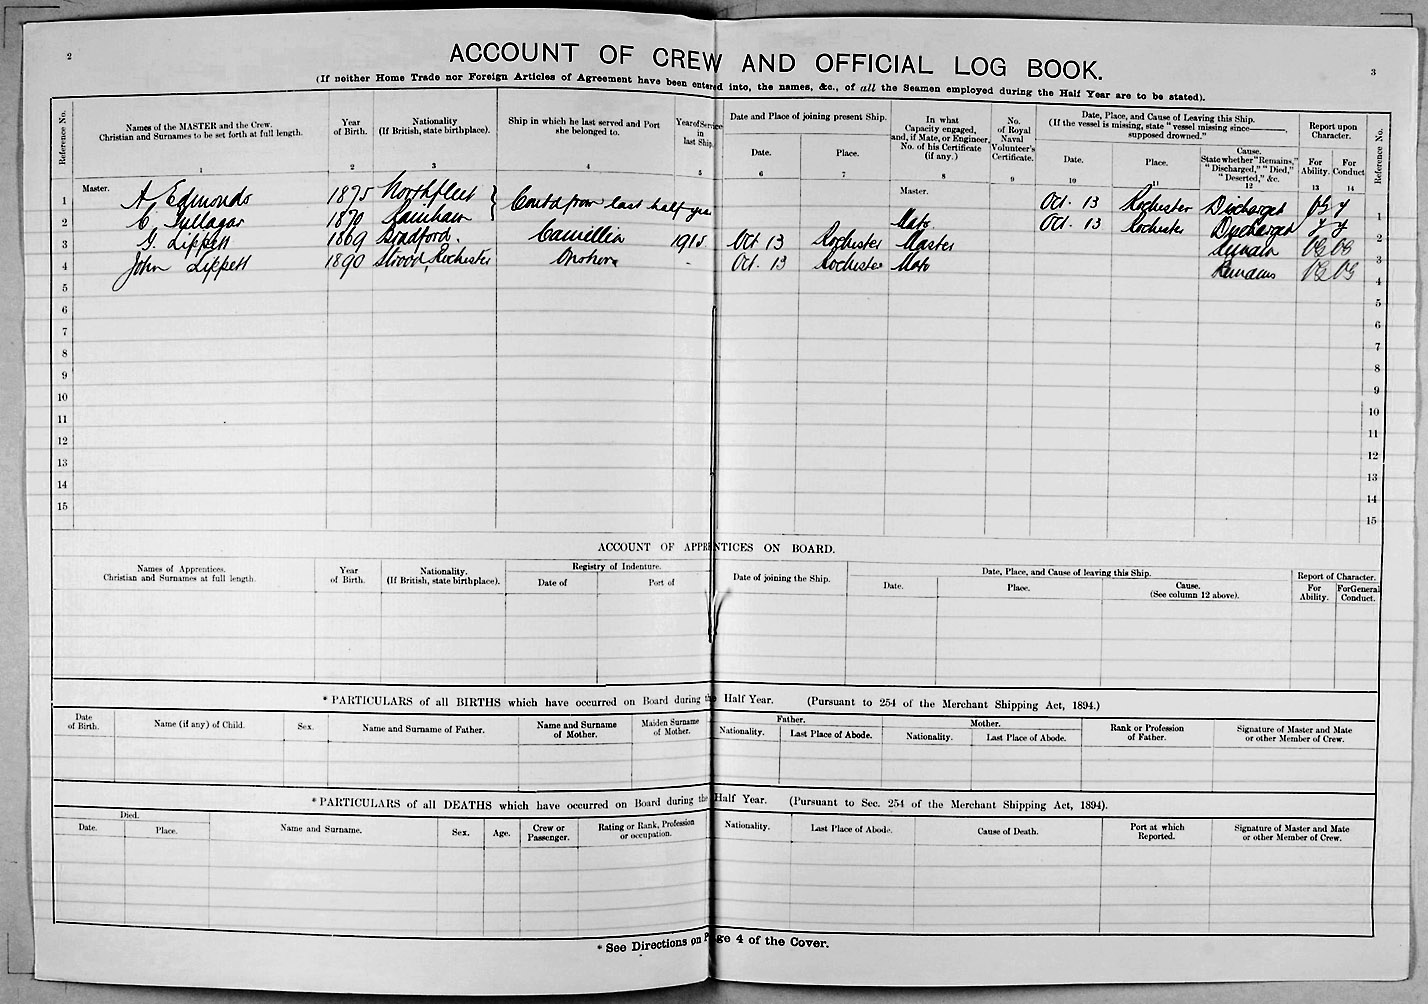 2
3
ACCOUNT OF CREW AND OFFICIAL LOG BOOK.
(If neither Home Trade nor Foreign Articles of Agreement have been entered into, the names, &c., of all the Seamen employed during the Half Year are to be stated).
Reference No. | Names of the MASTER and the Crew. Christian and Surnames to be set forth at full length. | Year of Birth. | Nationality (If British, state birthplace). | Ship in which he last served and Port she belonged to. | Year of Service in last Ship. | Date and Place of joining present Ship. | In what Capacity engaged, and, if Mate, or Engineer, No. of his Certificate (if any.) | No. of Royal Naval Volunteer's Certificate. | Date, Place, and Cause of Leaving this Ship. (If the vessel is missing, state "vessel missing since———, supposed drowned." | Report upon Character. | Reference No.
Date. | Place. | Date. | Place. | Cause. State whether "Remains," "Discharged," "Died," "Deserted," &c. | For Ability. | For Conduct
1 2 3 4 5 6 7 8 9 10 11 12 13 14
Master. Master.
1 A Edmonds 1875 Northfleet Contd from last half year Oct. 13 Rochester Discharged 1
2 C. Fullagar 1870 Rainham Mate Oct. 13 Rochester Discharged 2
3 Lippett 1869 Bradford. Camellia 1915 Oct 13 Rochester Master Remain VG VG 3
4 John Lippett 1890 Strood, Rochester - Oct. 13 Rochester Mate Remains VG VG 4
5 5
6 6
7 7
8 8
9 9
10 10
11 11
12 12
13 13
14 14
15 15
ACCOUNT OF APPRENTICES ON BOARD.
Names of Apprentices. Christian and Surnames at full length. | Year of Birth. | Nationality. (If British, state birthplace). | Registry of Indenture. | Date of joining the Ship. | Date, Place, and Cause of leaving this Ship. | Report of Character.
Date of | Port of | Date. | Place. | Cause. (See column 12 above). | For Ability. | For General Conduct.
* PARTICULARS of all BIRTHS which have occurred on Board during the Half Year. (Pursuant to 254 of the Merchant Shipping Act, 1894.)
Date of Birth. | Name (if any) of Child. | Sex. | Name and Surname of Father. | Name and Surname of Mother. | Maiden Surname of Mother. | Father. | Mother. | Rank or Profession of Father. | Signature of Master and Mate or other Member of Crew.
Nationality. | Last Place of Abode. | Nationality. | Last Place of Abode.
* PARTICULARS of all DEATHS which have occurred on Board during the Half Year. (Pursuant to Sec. 254 of the Merchant Shipping Act, 1894).
Died. | Name and Surname. | Sex. | Age. | Crew or Passenger. | Rating or Rank, Profession or occupation. | Nationality. | Last Place of Abode. | Cause of Death. | Port at which Reported. | Signature of Master and Mate or other Member of Crew.
Date. | Place.
* See Directions on Page 4 of the Cover.